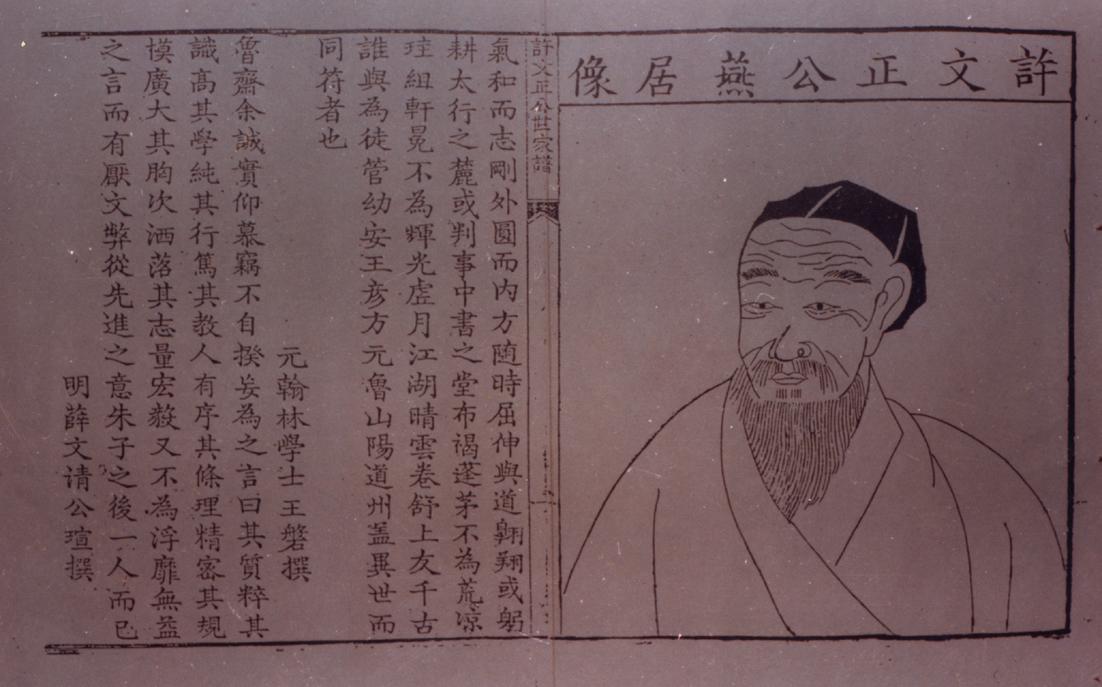 許文正公燕居像
許文正公世家譜
氣和而志剛外圓而內方隨時屈伸與道翺翔或躬
耕太行之麓或判事中書之堂布褐蓬茅不為荒凉
珪組軒冕不為輝光虛月江湖晴雲卷舒上友千古
誰與為徒管幼安王彥方元魯山陽道州盖異世而
同符者也
元翰林學士王磐撰
魯齋余誠實仰慕竊不自揆妄為之言曰其質粹其
識高其學純其行篤其教人有序其條理精密其規
模廣大其胸次洒落其志量宏毅又不為浮靡無益
之言而有厭文弊從先進之意朱子之後一人而已
明薛文请公瑄撰